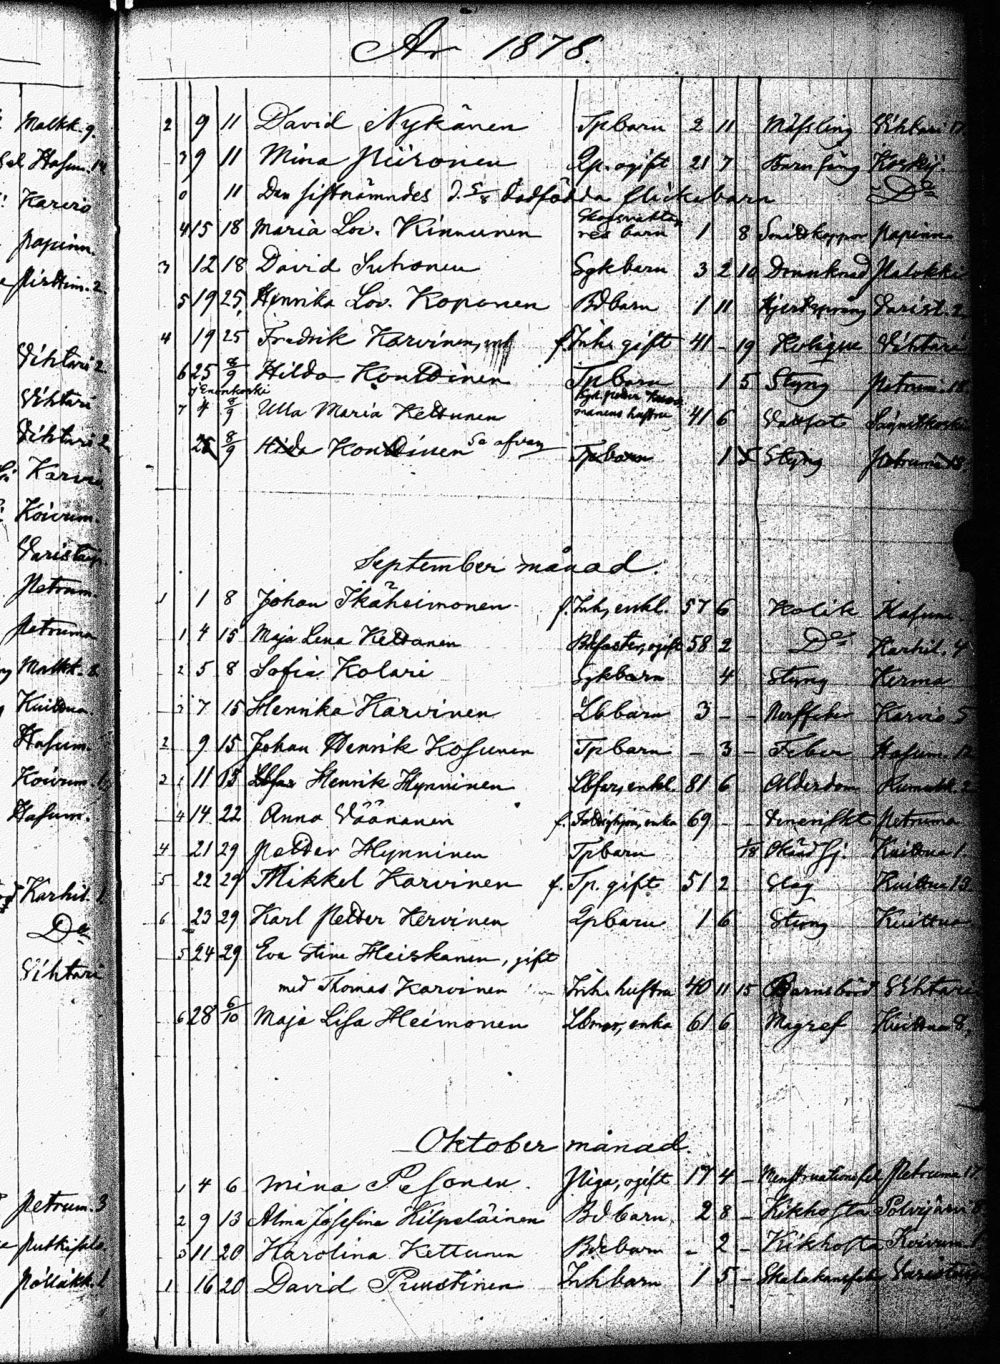 Malkk. 9.
Hasum. 14
Karvio
Papinn.
2.
Vihtari 2
Vihtari
Vihtari 2
Karvio
Koivum.
Petrum.
Petruma
Malkk. 8.
Kuittua.
Hasum.
Koivum.
Hasum.
Karhil. 1.
Do
Vihtari
Petrum. 3
År 1878.
2 9 11 David Nykänen Tpbarn 2 11 Mässling Vihtari 17
3 9 11 Mina Piironen Lp. ogift 21 7 Barnsäng Koskij.
0 11 Den sistnämndes d. 5/8 dödfödda flickebarn Do
4 15 18 Maria Lov. Kinnunen Skogsvakta-
res barn 1 8 Smittkoppor Papinn.
3 12 18 David Suhonen Sgkbarn 3 2 10 Drunknad Palokki
5 19 25 Henrika Lov. Koponen Bdbarn 1 11 Varist. 2
4 19 25 Fredrik Karvinen, f. Inh. gift 41 - 19 Kolique Vihtari
6 25 8/9 Hilda Konttinen Tpbarn 1 5 Styng Petrum. 18
7 4 8/9 Ulla Maria Kettunen 41 6
25 8/9 Hilda Konttinen Tpbarn 1 5 Styng Petruma 18.
September månad.
1 1 8 Johan Ikäheimonen f. Inh, enkl. 57 6 Kolik Hasum.
1 4 15 Maja Lena Kettanen ogift 58 2 Do Karhil. 4
2 5 8 Sofia Kolari Sgkbarn 4 Styng Kerma
3 7 15 Henrika Karvinen Lbbarn 3 - - Nerffeber Karvio 5
2 9 15 Johan Henrik Kosunen Tpbarn - 3 - Feber Hasum. 12
2 11 15 Lbfar Henrik Hynninen Lbfar, enkl. 81 6 Ålderdom 2
4 14 22 Anna Väänänen enka 69 - - Veneriskt Petruma
4 21 29 Petter Hynninen Tpbarn 1/18 Okänd sj. Kuittua 1.
5 22 29 Mikkel Karvinen f. Tp. gift 51 2 Slag Kuittua 19
6 23 29 Karl Petter Kervinen Lpbarn 1 6 Styng Kuittua
5 24 29 Eva Stina Heiskanen, gift
med Thomas Karvinen Inh. hustru 40 11 15 Barnsbörd Vihtari
6 28 6/10 Maja Lisa Heimonen Lbmor, enka 61 6 Magref Kuittua 8.
Oktober månad.
1 4 6 Mina Pesonen. Piga, ogift 17 4 - Petruma 17.
2 9 13 Alma Josefina Hilpeläinen Bdbarn. 2 8 - Kikhosta Polvijärvi
3 11 20 Karolina Kettunen Bdbarn - 2 - Kikhosta Koivum.
1 16 20 David Puustinen Inhbarn 1 5 -